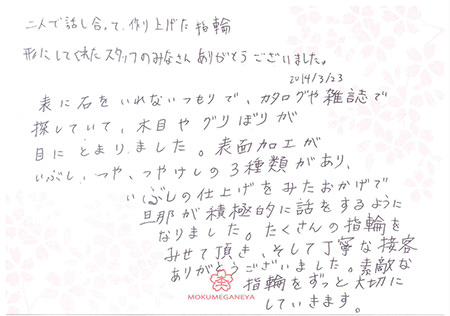 二人で話し合って、作り上げた指輪
形にしてくれたスタッフのみなさんありがとうございました。
2014/3/23
表に石をいれないつもりで、カタログや雑誌で
探していて、木目やグリぼりが
目にとまりました。表面加工が
いぶし、つや、つやけしの3種類があり、
いぶしの仕上げをみたおかげで
旦那が積極的に話をするように
なりました。たくさんの指輪を
みせて頂き、そして丁寧な接客
ありがとうございました。素敵な
指輪をずっと大切に
していきます。
MOKUMEGANEYA